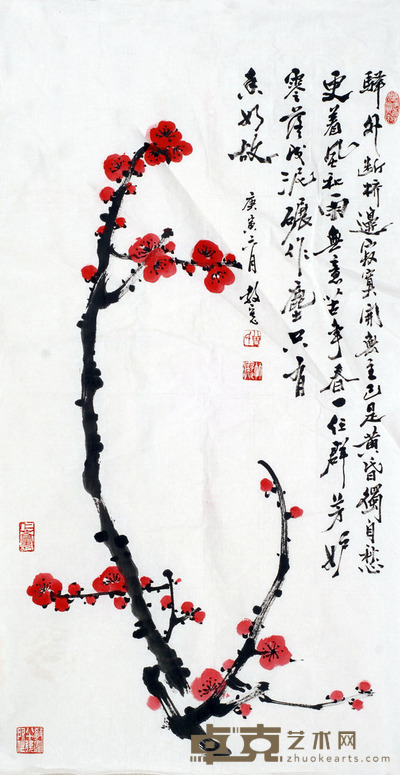 驛外断桥邊寂寞開無主已是黄昏獨自愁
更着風和雨無意苦争春一任群芳妒
零落成泥碾作塵只有
香如故
庚寅
卓克艺术网
zhuokearts.com